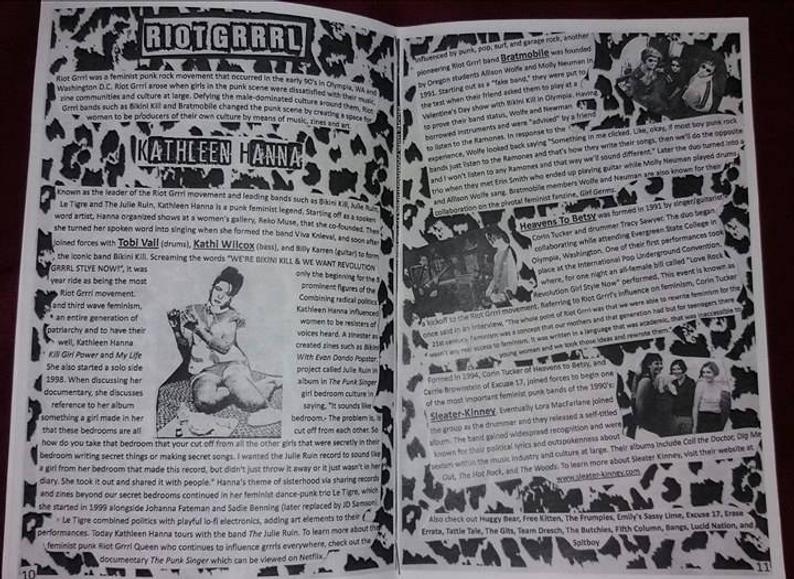 RIOTGRRRL
Riot Grrrl was a feminist punk rock movement that occurred in the early 90's in Olympia, WA and
Washington D.C. Riot Grrrl arose when girls in the punk scene were dissatisfied with their music,
zine communities and culture at large. Defying the male-dominated culture around them, Riot
Grrrl bands such as Bikini Kill and Bratmobile changed the punk scene by creating a space for
women to be producers of their own culture by means of music, zines and art.
KATHLEEN HANNA
Known as the leader of the Riot Grrrl movement and leading bands such as Bikini Kill, Julie Ruin,
Le Tigre and The Julie Ruin, Kathleen Hanna is a punk feminist legend. Starting off as a spoken
word artist, Hanna organized shows at a women's gallery, Reko Muse, that she co-founded. Then
she turned her spoken word into singing when she formed the band Viva Knieval, and soon after
joined forces with Tobi Vail (drums), Kathi Wilcox (bass), and Billy Karren (guitar) to form
the iconic band Bikini Kill. Screaming the words "WE'RE BIKINI KILL & WE WANT REVOLUTION
GRRRL STLYE NOW!", it was only the beginning for the
year ride as being the most prominent figures of the
Riot Grrrl movement. Combining radical politics
and third wave feminism, Kathleen Hanna influenced
an entire generation of women to be resisters of
patriarchy and to have their voices heard. A zinester as
well, Kathleen Hanna created zines such as Bikini
Kill Girl Power and My Life With Evan Dando Popstar.
She also started a solo side project called Julie Ruin in
1998. When discussing her album in The Punk Singer
documentary, she discusses girl bedroom culture in
reference to her album saying, "It sounds like
something a girl made in her bedroom. The problem is,
that these bedrooms are all cut off from each other. So
how do you take that bedroom that your cut off from all the other girls that were secretly in their
bedroom writing secret things or making secret songs. I wanted the Julie Ruin record to sound like
a girl from her bedroom that made this record, but didn't just throw it away or it just wasn't in her
diary. She took it out and shared it with people." Hanna's theme of sisterhood via sharing records
and zines beyond our secret bedrooms continued in her feminist dance-punk trio Le Tigre, which
she started in 1999 alongside Johanna Fateman and Sadie Benning (later replaced by JD Samson)
Le Tigre combined politics with playful lo-fi electronics, adding art elements to their
performances. Today Kathleen Hanna tours with the band The Julie Ruin. To learn more about the
feminist punk Riot Grrrl Queen who continues to influence grrrls everywhere, check out the
documentary The Punk Singer which can be viewed on Netflix.
10
Influenced by punk, pop, surf, and garage rock, another
pioneering Riot Grrrl band Bratmobile was founded
by Oregon students Allison Wolfe and Molly Neuman in
1991. Starting out as a "fake band," they were put to
the test when their friend asked them to play at a
Valentine's Day show with Bikini Kill in Olympia. Having
to prove their band status, Wolfe and Newman
borrowed instruments and were "advised" by a friend
to listen to the Ramones. In response to the
experience, Wolfe looked back saying "Something in me clicked. Like, okay, if most boy punk rock
bands just listen to the Ramones and that's how they write their songs, then we'll do the opposite
and I won't listen to any Ramones and that way we'll sound different." Later the duo turned into a
trio when they met Erin Smith who ended up playing guitar while Molly Neuman played drums
and Allison Wolfe sang. Bratmobile members Wolfe and Neuman are also known for their
collaboration on the pivotal feminist fanzine, Girl Germs.
Heavens To Betsy was formed in 1991 by singer/guitarist
Corin Tucker and drummer Tracy Sawyer. The duo began
collaborating while attending Evergreen State College in
Olympia, Washington. One of their first performances took
place at the International Pop Underground Convention,
where, for one night an all-female bill called "Love Rock
Revolution Girl Style Now" performed. This event is known as
a kickoff to the Riot Grrrl movement. Referring to Riot Grrrl's influence on feminism, Corin Tucker
once said in an interview, "The whole point of Riot Grrrl was that we were able to rewrite feminism for the
21st century. Feminism was a concept that our mothers and that generation had but for teenagers there
wasn't any real access to feminism. It was written in a language that was academic, that was inaccessible to
young women and we took those ideas and rewrote them."
Formed in 1994, Corin Tucker of Heavens to Betsy, and
Carrie Brownstein of Excuse 17, joined forces to begin one
of the most important feminist punk bands of the 1990's:
Sleater-Kinney. Eventually Lora MacFarlane joined
the group as the drummer and they released a self-titled
album. The band gained widespread recognition and were
known for their political lyrics and outspokenness about
sexism within the music industry and culture at large. Their albums include Call the Doctor, Dig Me
Out, The Hot Rock, and The Woods. To learn more about Sleater Kinney, visit their website at
www.sleater-kinney.com.
Also check out Huggy Bear, Free Kitten, The Frumpies, Emily's Sassy Lime, Excuse 17, Erase
Errata, Tattle Tale, The Gits, Team Dresch, The Butchies, Fifth Column, Bangs, Lucid Nation, and
Spitboy
11